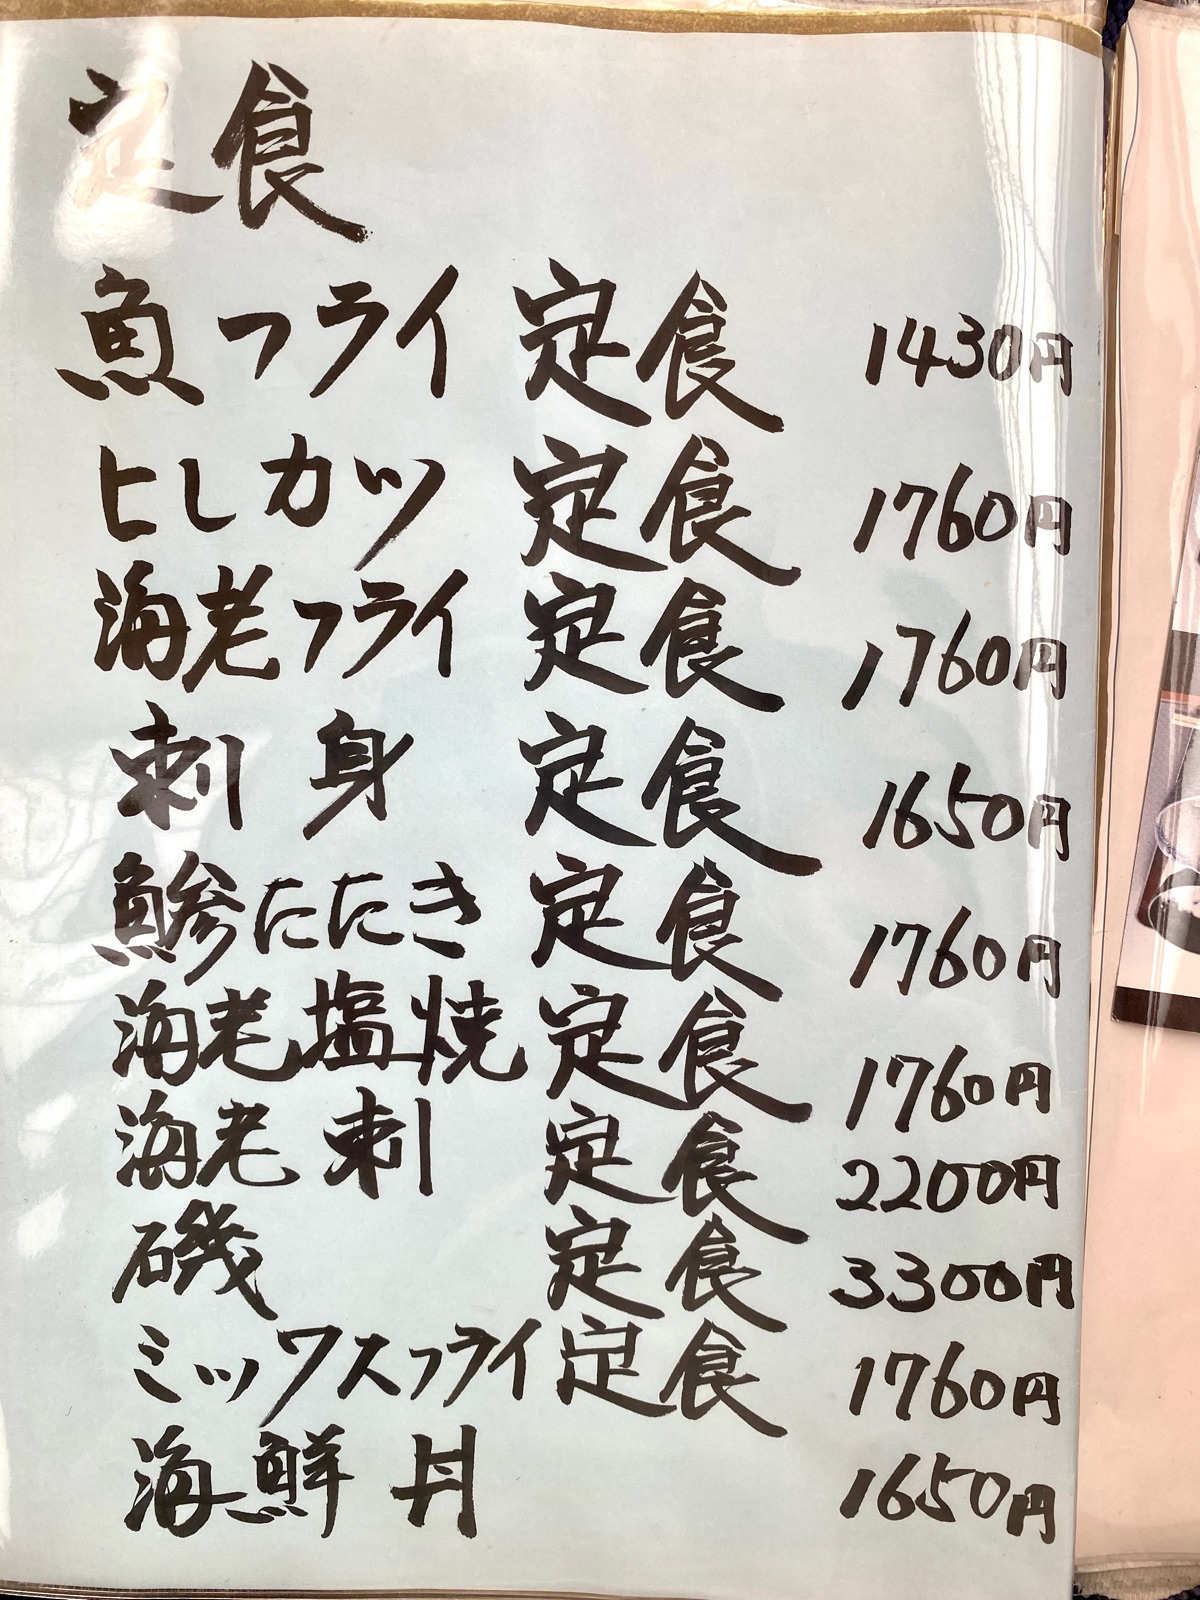 定食
魚フライ定食 1430円
ヒレカツ定食 1760円
海老フライ定食 1760円
刺身定食 1650円
鯵たたき定食 1760円
海老塩焼定食 1760円
海老刺定食 2200円
磯定食 3300円
ミックスフライ定食 1760円
海鮮丼 1650円